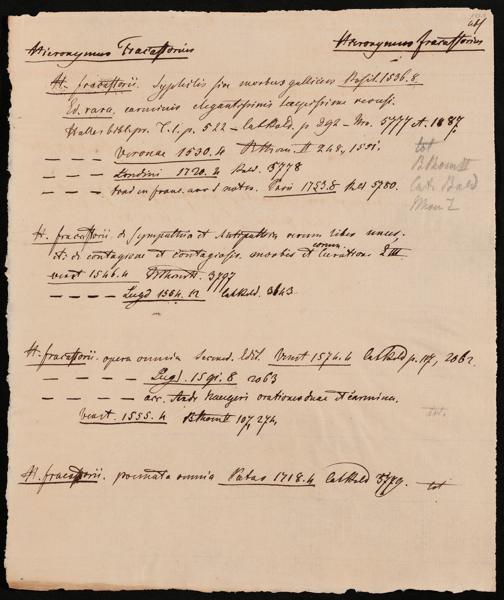 Hieronymus Fracastorius Hieronymus fracastorius
H. fracastorii. Syphilis sive morbus gallicus Basil. 1536. 8
Ed. rara. carminis elegantissimi
Haller bibl. pr. T. 1. p. 522 – Cat Bald. p 292 – Nro. 5777 et. 1887.
– – – Veronae 1530. 4 BThom. II 248, 1551.
tot
– – – Londini 1720. 4 Bald. 5778
BThom II
– – – trad en franc. avec d notes. Paris 1753. 8 Bald 5780.
Cat. Bald
H. fracastorii de Sympathia et Antipathia rerum liber unus.
et. de contagione et contagiosis morbis et eorum curatione L III
Venet 1546. 4 BThom II. 3797
– – – – Lugd 1554. 12 Cat Bald. 3643
H. fracastorii opera omnia Secund. Edit. Venet 1574. 4 Cat Bald p. 118, 2062
– – – – Lugd. 1591. 8 2063
– – – – acc. Andr Naugeri orationes duae et carmina.
Venet. 1555. 4 BThom II 107, 274
tot.
H. fracastorii. poemata omnia Patav 1718. 4 Cat Bald 5779. tot